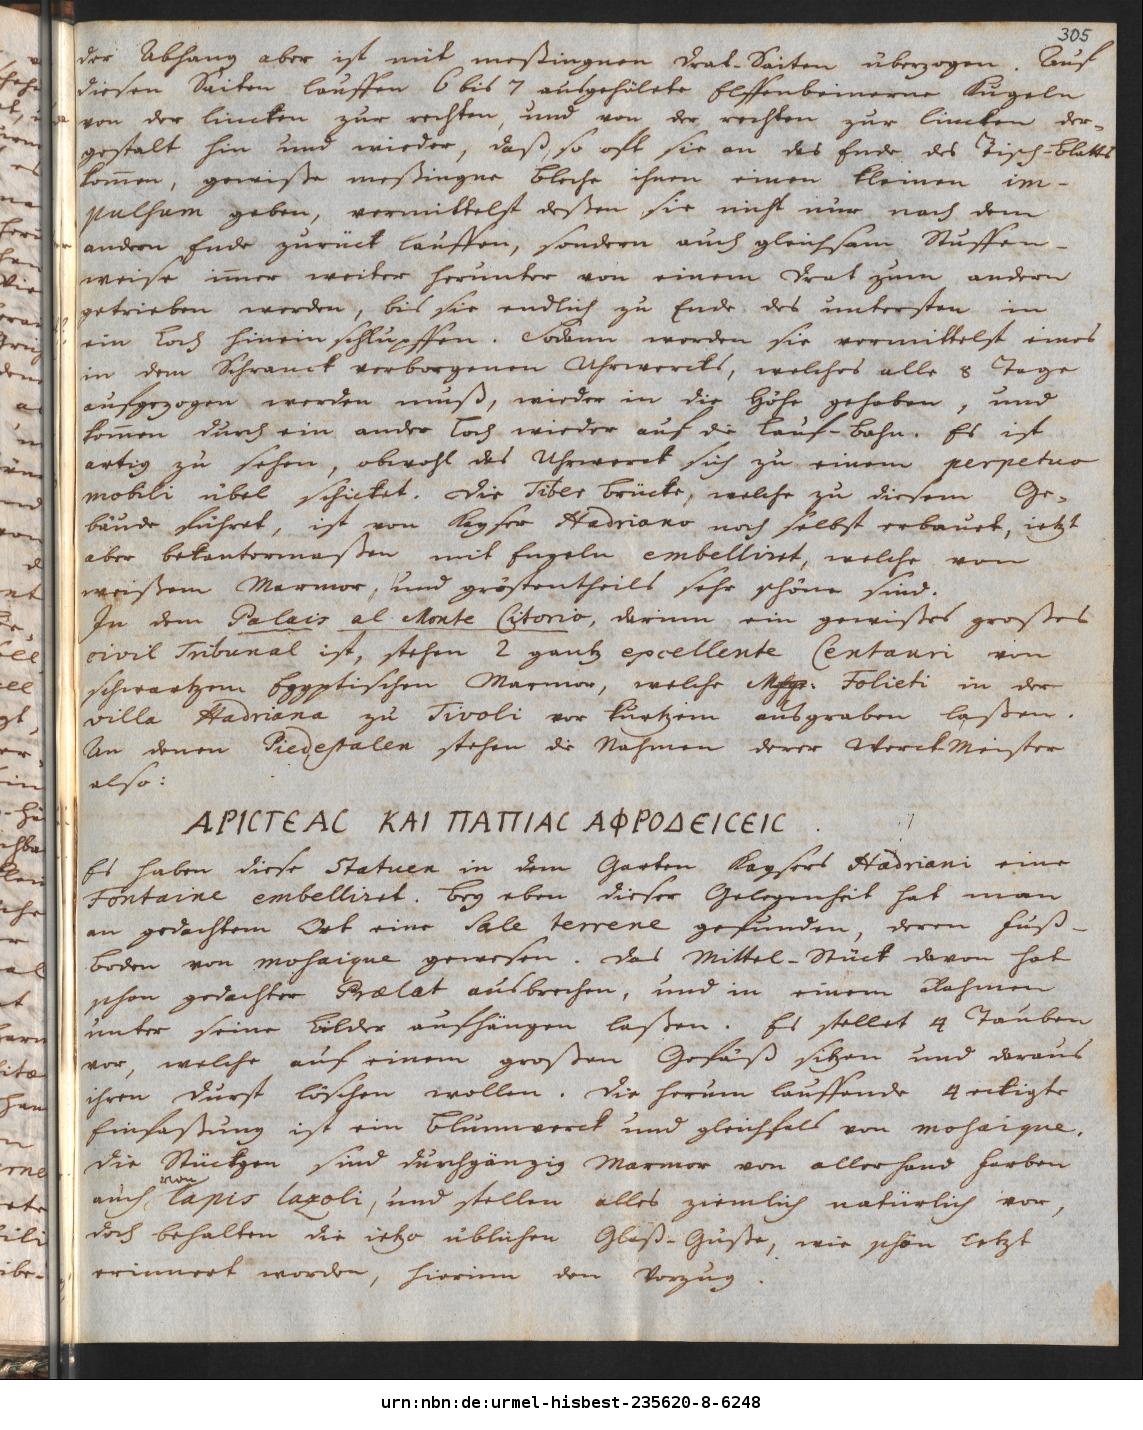 305
der Abhang aber ist mit meßingnen Drat-Saiten überzogen. Auf
diesen Saiten lauffen 6 bis 7 ausgehülete Elffenbeinerne Kugeln
von der lincken zur rechten, und von der rechten zur lincken der-
gestalt hin und wieder, daß, so oft sie an das Ende des Tisch-blatts
kom̄en, gewiße meßingne Bleche ihnen einen kleinen im-
pulsum geben, vermittelst deßen sie nicht nur nach dem
andern Ende zurück lauffen, sondern auch gleichsam Stuffen-
weise im̄er weiter herunter von einem Drat zum andern
getrieben werden, bis sie endlich zu Ende des untersten in
ein Loch hinein schlupffen. Sodann werden sie vermittelst eines
in dem Schranck verborgenen Uhrwercks, welches alle 8 Tage
aufgezogen werden muß, wieder in die Höhe gehoben, und
kom̄en durch ein ander Loch wieder auf die Lauf-bahn. Es ist
artig zu sehen, obwohl das Uhrwerck sich zu einem perpetuo
mobili übel schicket. Die Tiber brücke, welche zu diesem Ge-
bäude führet, ist von Kayser Hadriano noch selbst erbauet, ietzt
aber bekantermaßen mit Engeln embelliret, welche von
weißem Marmor, und gröstentheils sehr schöne sind.
In dem Palais al Monte Citorio, darinn ein gewißes großes
civil Tribunal ist, stehen 2 gantz excellente Centauri von
schwartzem Egyptischen Marmor, welche Msgr: Folieti in der
villa Hadriana zu Tivoli vor kurtzem ausgraben laßen.
An denen Piedestalen stehen die Nahmen derer WerckMeister
also:
ΑΡΙϹΤΕΑϹ ΚΑΙ ΠΑΠΙΑϹ ΑΦΡΟΔΕΙϹΕΙϹ
Es haben diese Statuen in dem Garten Kaysers Hadriani eine
Fontaine embelliret. Bey eben dieser Gelegenheit hat man
an gedachtem Ort eine Sale terrene gefunden, deren Fuß-
boden von mosaique gewesen. Das Mittel-Stück davon hat
schon gedachter Prælat ausbrechen, und in einem Rahmen
unter seine Bilder aufhängen laßen. Es stellet 4 Tauben
vor, welche auf einem großen Gefäß sitzen und daraus
ihren Durst löschen wollen. Die herum lauffende 4 eckigte
Einfaßung ist ein Blumwerck und gleichfals von mosaique.
Die Stückgen sind durchgängig Marmor von allerhand Farben
auch von lapis lazoli, und stellen alles ziemlich natürlich vor,
doch behalten die ietzo üblichen Glaß-Güße, wie schon letzt
erinnert worden, hierinn den Vorzug.
urn:nbn:de:urmel-hisbest-235620-8-6248